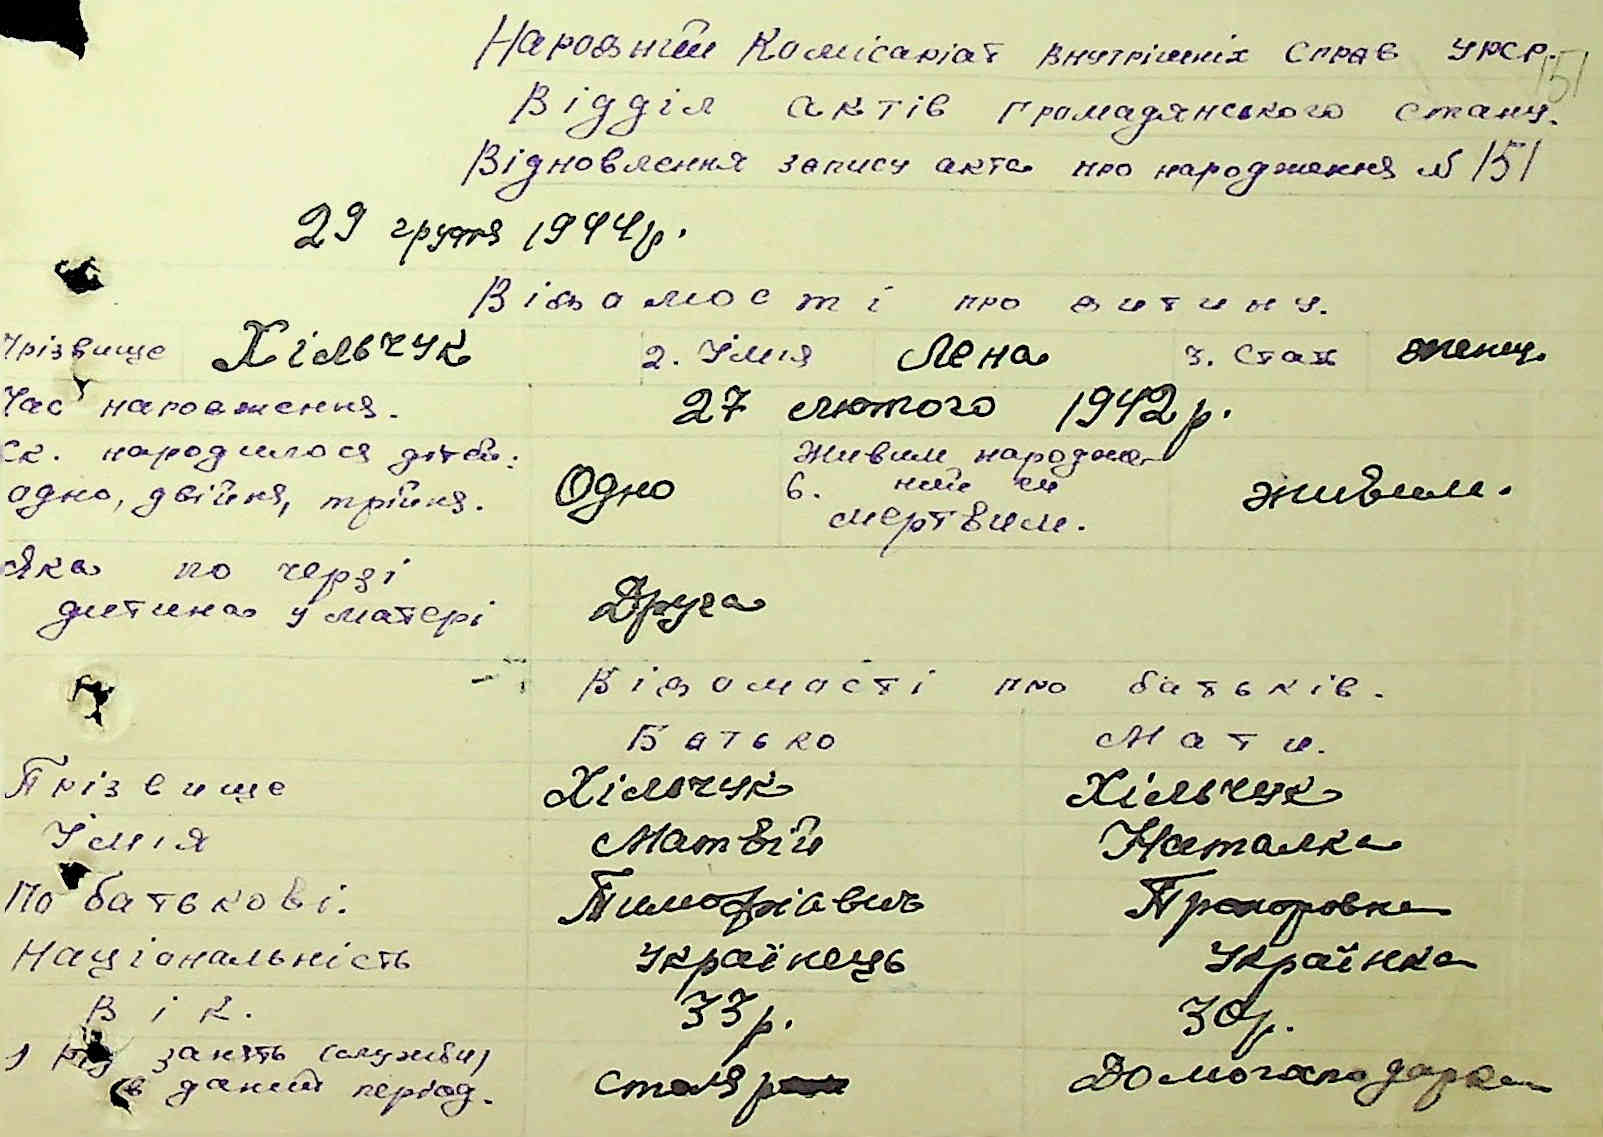 Народній Комісаріат Внутрішніх Справ УРСР.
151
Відділ актів громадянського стану.
Відновлення запису акта про народження N 151
29 грудня 1944 р.
Відомості про дитину.
Прізвище Хільчук 2. Ім'я Лена 3. Стать женщ.
Час народження. 27 лютого 1942 р.
Ск. народилося дітей: Одно 6. Живим народже-
одно, двійня, трійня. ний чи живим.
мертвим.
Яка по черзі
дитина у матері Друга
Відомості про батьків.
Батько Мати.
Прізвище Хільчук Хільчук
Ім'я Матвій Наталка
По батькові. Тимофіавич Прохоровна
Національність Українець Українка
Вік. 33 р. 30 р.
Рід занять (служби)
в даний період. столяр Домогосподарка